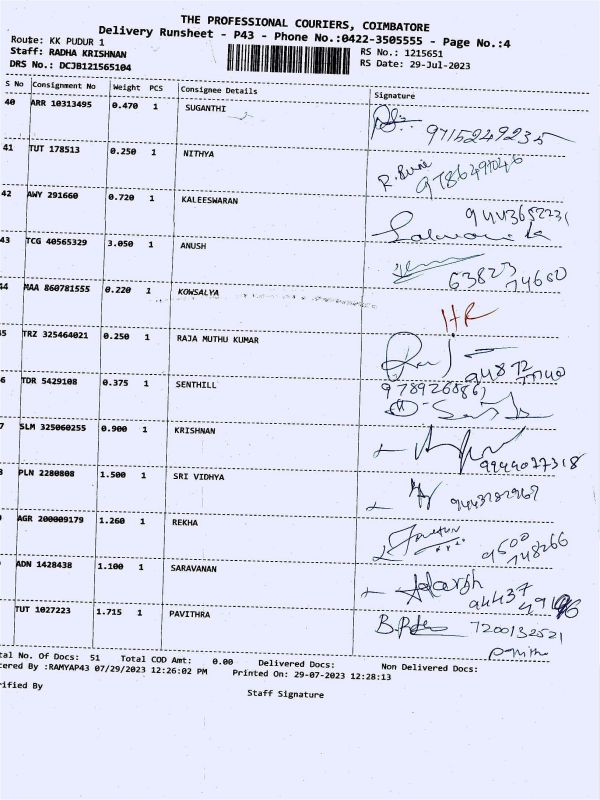 THE PROFESSIONAL COURIERS, COIMBATORE
Delivery Runsheet - P43 - Phone No.:0422-3505555 - Page No.:4
Route: KK PUDUR 1
RS No.: 1215651
Staff: RADHA KRISHNAN
RS Date: 29-Jul-2023
DRS No.: DCJB121565104
S No Consignment No Weight PCS Consignee Details Signature
40 ARR 10313495 0.470 1 SUGANTHI
9715249235
41 TUT 178513 0.250 1 NITHYA
42 AWY 291660 0.720 1 KALEESWARAN
43 TCG 40565329 3.050 1 ANUSH
63823
74660
44 MAA 860781555 0.220 1 KOWSALYA
HR
45 TRZ 325464021 0.250 1 RAJA MUTHU KUMAR
94872
77740
6 TDR 5429108 0.375 1 SENTHILL
7 SLM 325060255 0.900 1 KRISHNAN
9944077318
PLN 2280808 1.500 1 SRI VIDHYA
AGR 200009179 1.260 1 REKHA
9500
748266
ADN 1428438 1.100 1 SARAVANAN
Adarsh
94437
TUT 1027223 1.715 1 PAVITHRA
7200132521
tal No. Of Docs: 51 Total COD Amt: 0.00 Delivered Docs: Non Delivered Docs:
tered By :RAMYAP43 07/29/2023 12:26:02 PM Printed On: 29-07-2023 12:28:13
rified By
Staff Signature